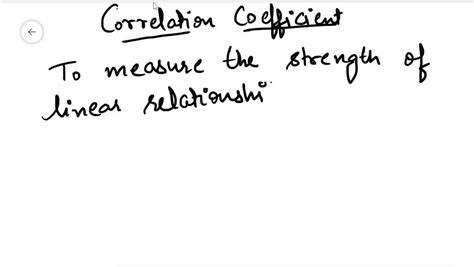 Correlation Coefficient
To measure the strength of
linear relationshi